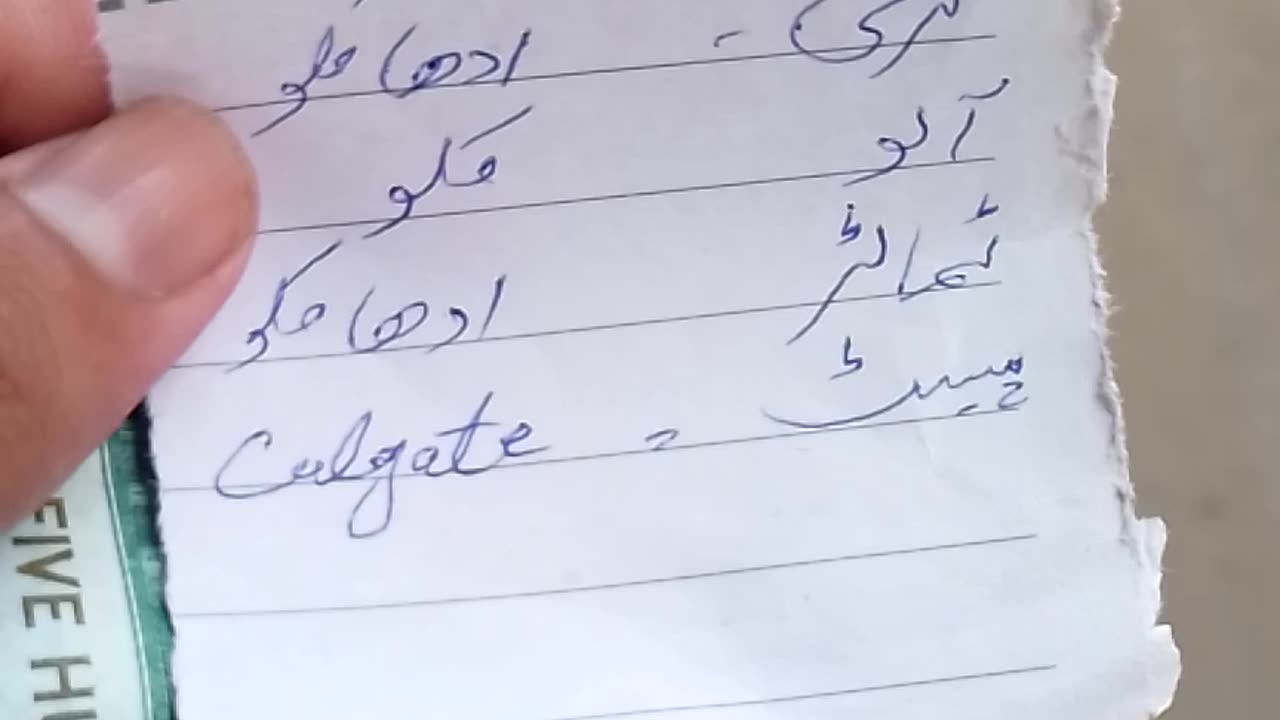 ادھا کلو
آلو کلو
ٹماٹر ادھا کلو
پیسٹ = Colgate
FIVE HU